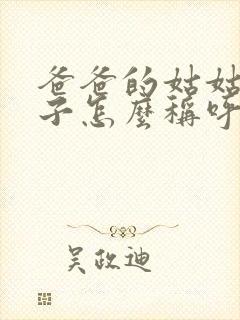 爸爸的姑姑
子怎麼稱呼
吴政迪